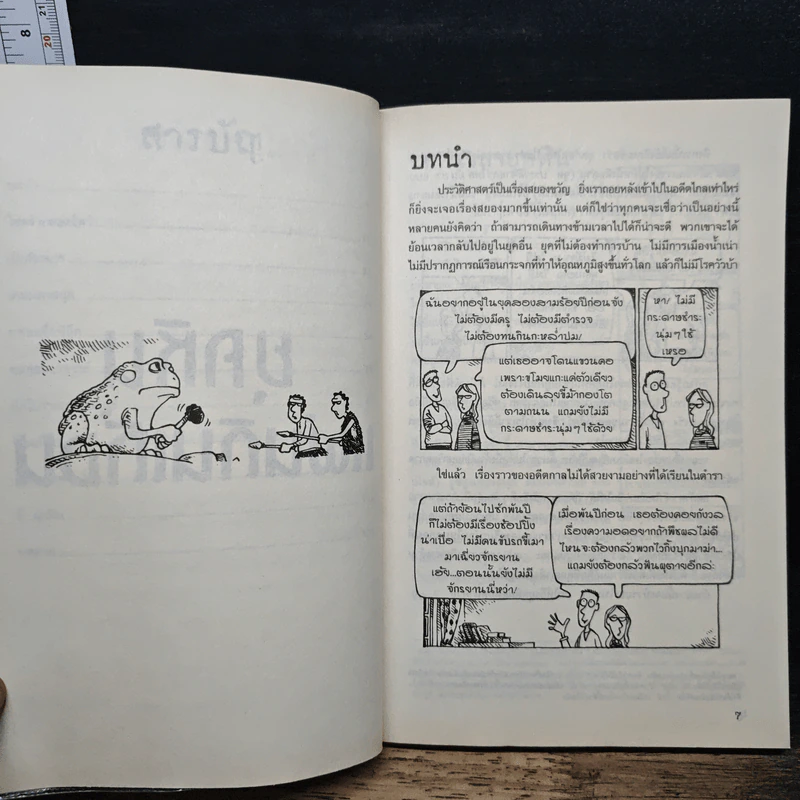 บทนำ
ประวัติศาสตร์เป็นเรื่องสยองขวัญ ยิ่งเราถอยหลังเข้าไปในอดีตไกลเท่าไหร่
ก็ยิ่งจะเจอเรื่องสยองมากขึ้นเท่านั้น แต่ก็ใช่ว่าทุกคนจะเชื่อว่าเป็นอย่างนี้
หลายคนยังคิดว่า ถ้าสามารถเดินทางข้ามเวลาไปได้ก็น่าจะดี พวกเขาจะได้
ย้อนเวลากลับไปอยู่ในยุคอื่น ยุคที่ไม่ต้องทำการบ้าน ไม่มีการเมืองน้ำเน่า
ไม่มีปรากฏการณ์เรือนกระจกที่ทำให้อุณหภูมิสูงขึ้นทั่วโลก แล้วก็ไม่มีโรควัวบ้า
ฉันอยากอยู่ในยุคสองสามร้อยปีก่อนจัง
ไม่ต้องมีครู ไม่ต้องมีตำรวจ
ไม่ต้องทนกินกะหล่ำปม!
แต่เธออาจโดนแขวนคอ
เพราะขโมยแกะแค่ตัวเดียว
ต้องเดินลุยขี้ม้ากองโต
ตามถนน แถมยังไม่มี
กระดาษชำระนุ่มๆ ใช้ด้วย
หา! ไม่มี
กระดาษชำระ
นุ่มๆ ใช้
เหรอ
ใช่แล้ว เรื่องราวของอดีตกาลไม่ได้สวยงามอย่างที่ได้เรียนในตำรา
แต่ถ้าย้อนไปซักพันปี
ก็ไม่ต้องมีเรื่องช้อปปิ้ง
น่าเบื่อ ไม่มีคนขับรถขี้เมา
มาเฉี่ยวจักรยาน
เฮ้ย...ตอนนั้นยังไม่มี
จักรยานนี่หว่า!
เมื่อพันปีก่อน เธอต้องคอยกังวล
เรื่องความอดอยากถ้าพืชผลไม่ดี
ไหนจะต้องกลัวพวกไวกิ้งบุกมาฆ่า...
แถมยังต้องกลัวฟันผุตายอีกล่ะ
7
8
20
21